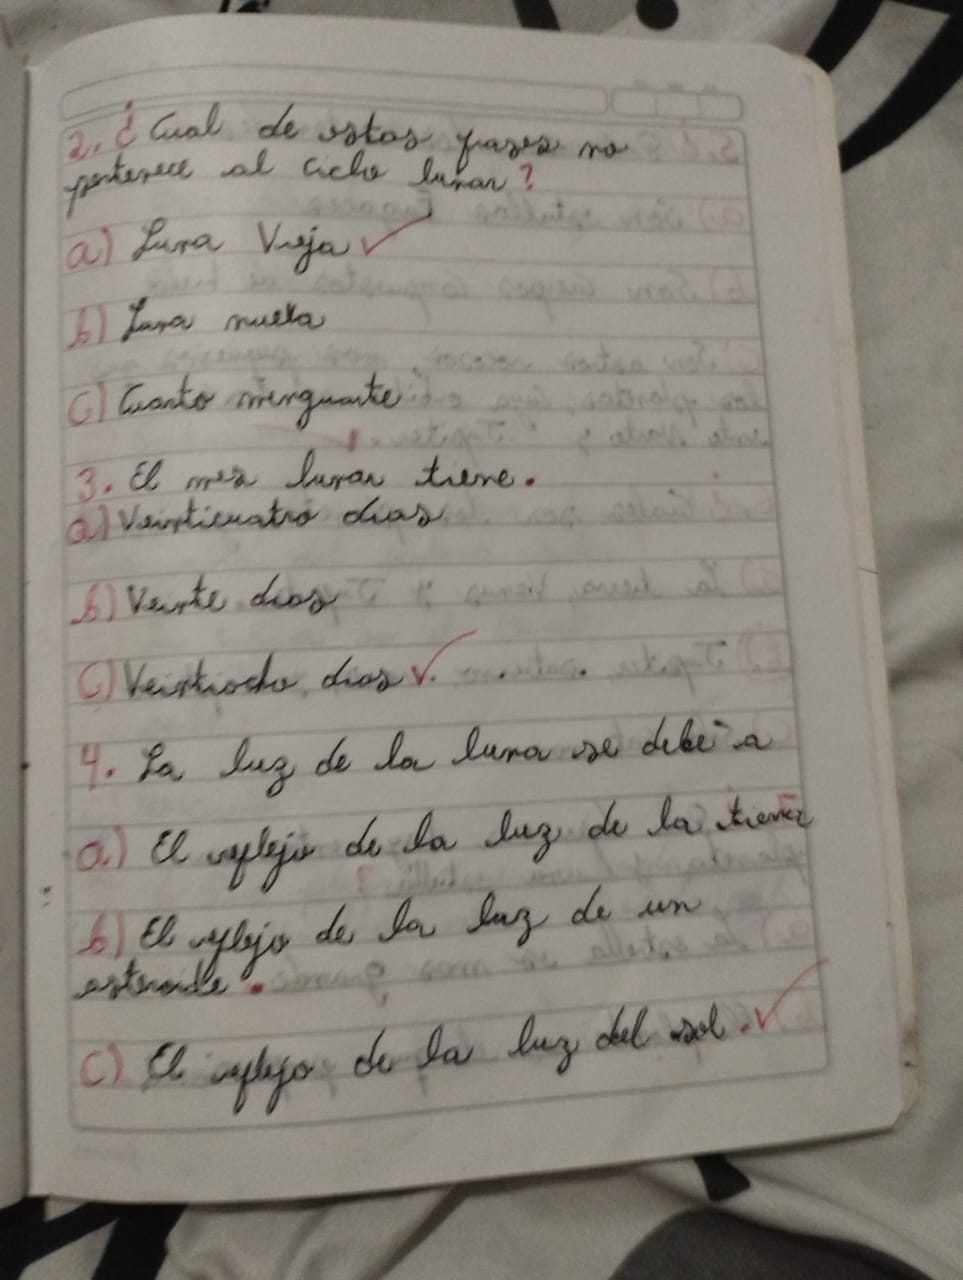 2. ¿Cual de estas frases no
pertenece al ciclo lunar?
a) Luna Vieja ✓
b) Luna nueva
c) Cuarto menguante
3. El mes lunar tiene.
a) Veinticuatro dias
b) Veinte dias
c) Veintiocho dias ✓.
4. La luz de la luna se debe a
a) El reflejo de la luz de la tierra
b) El reflejo de la luz de un
asteroide.
c) El reflejo de la luz del sol. ✓